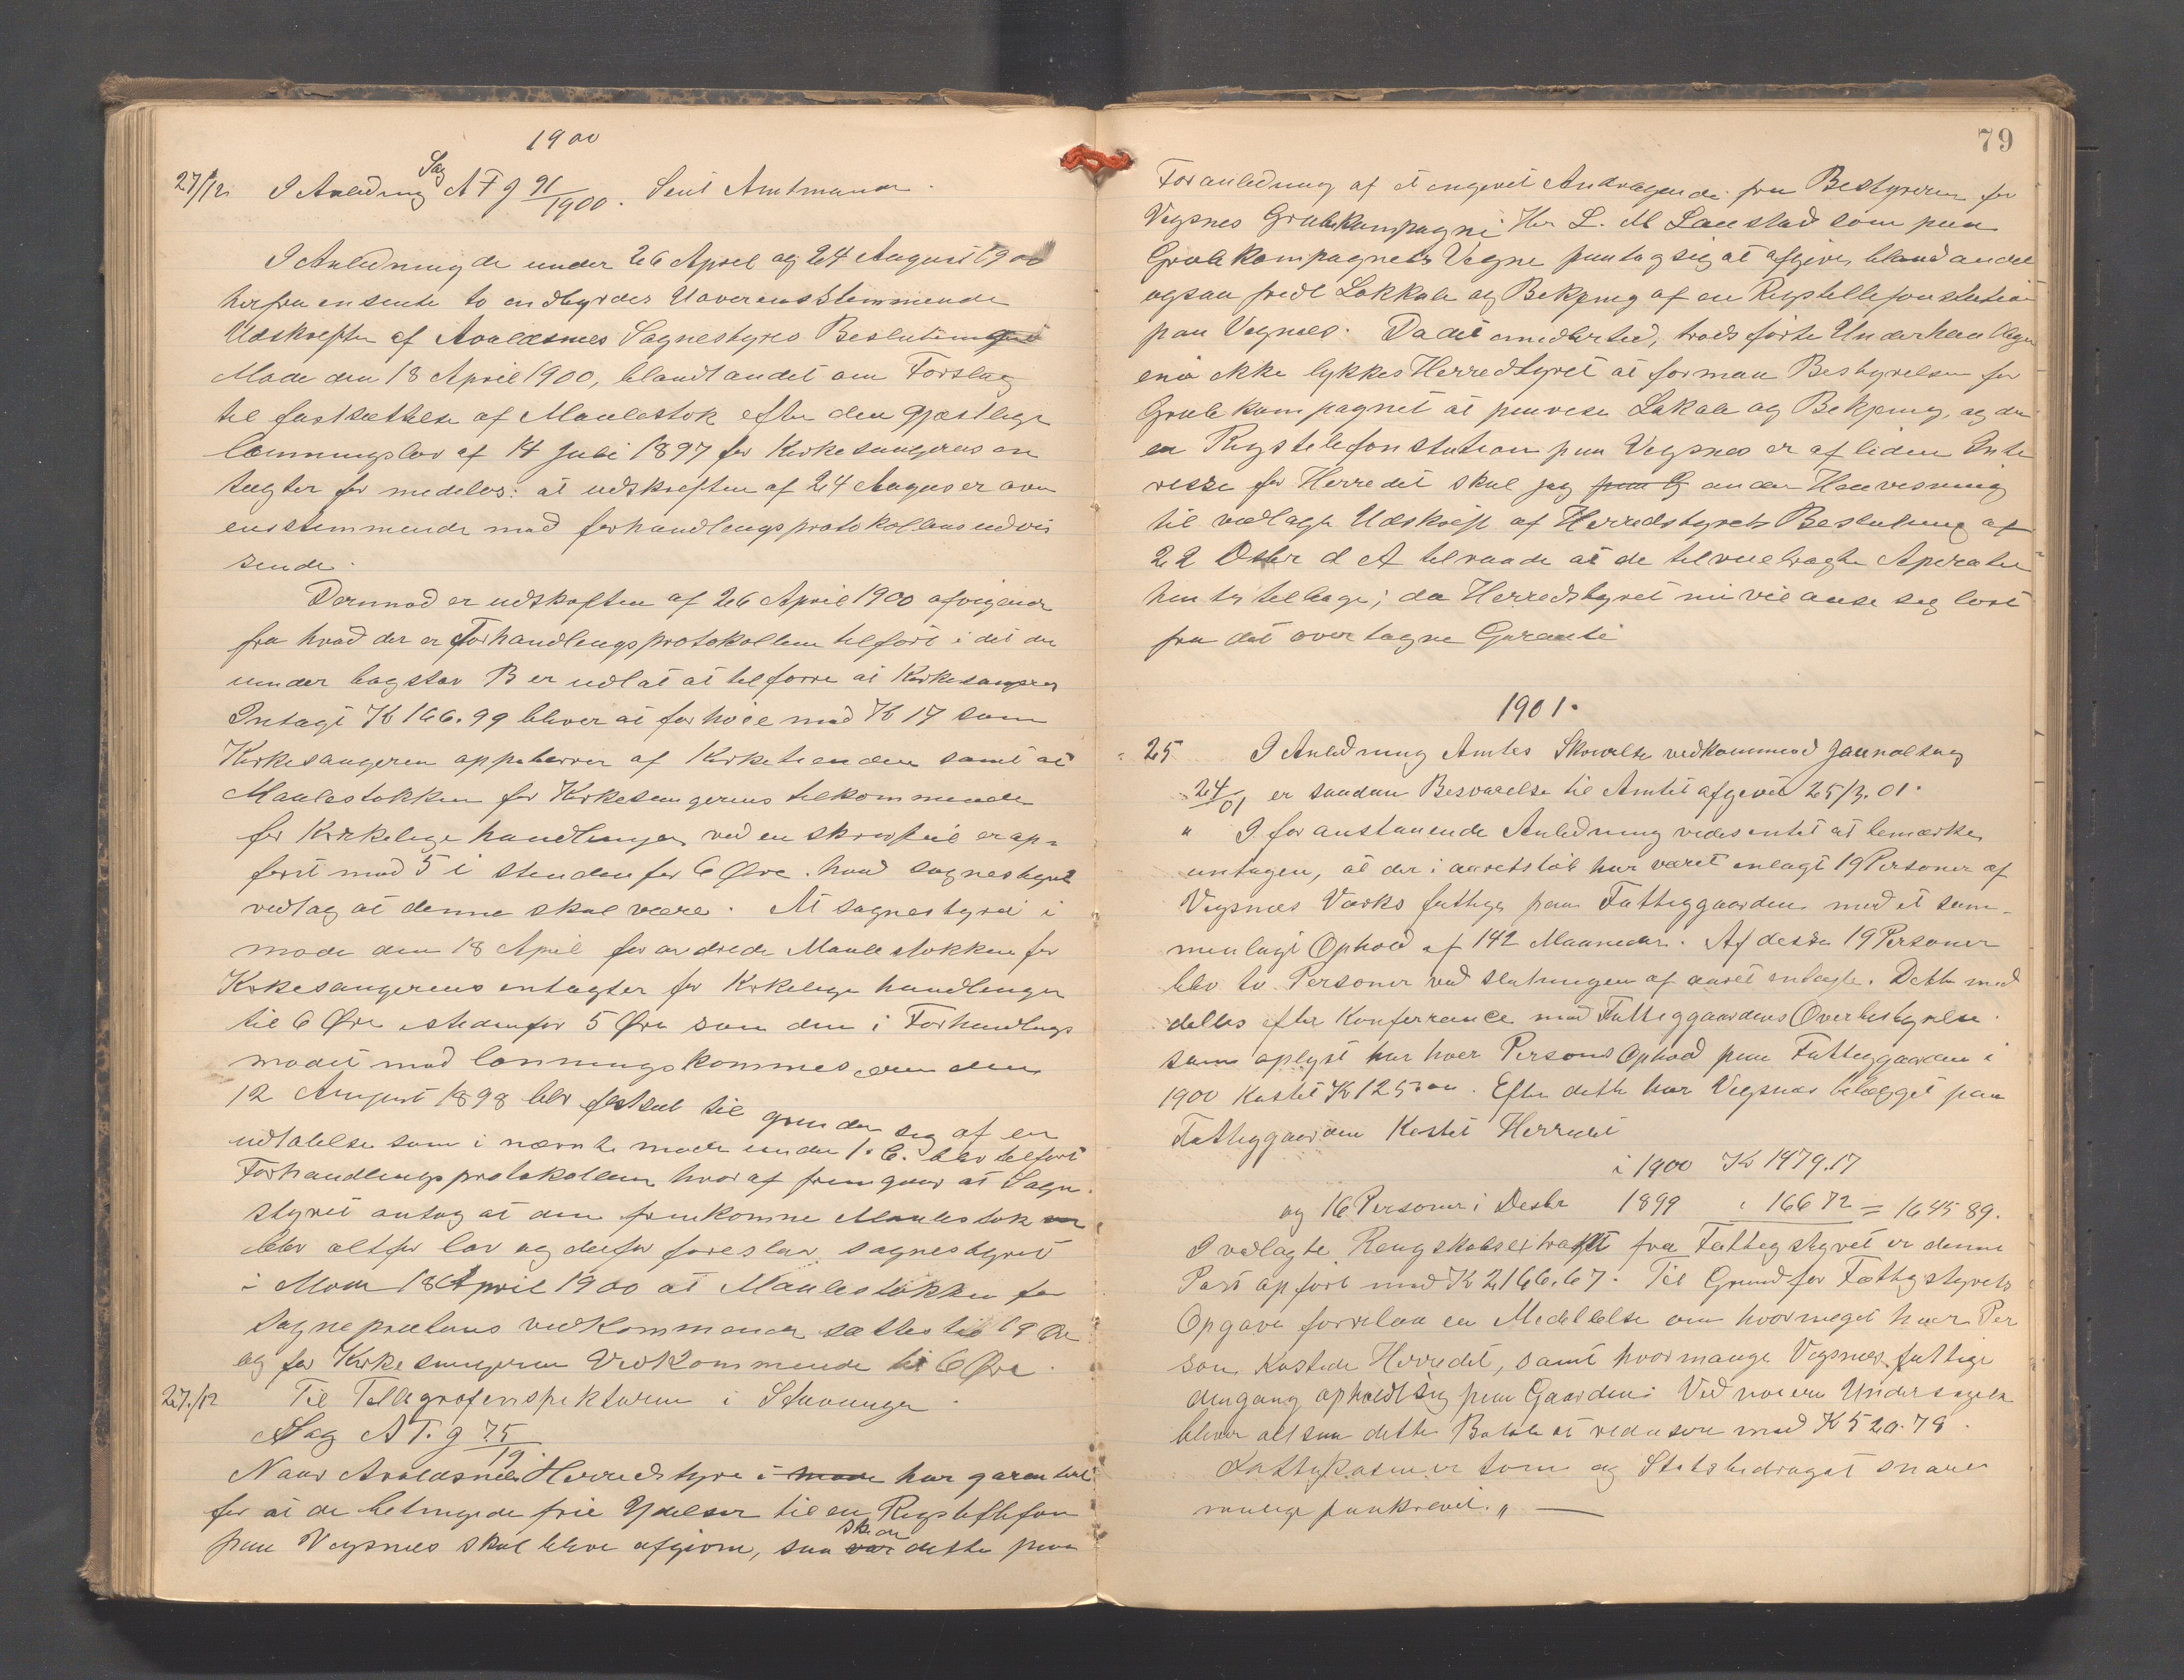 1900
27/12 I Anledning Sag A F g 91/1900. Sent Amtmanden.
I Anledning de under 26 April og 24 August 1900
herfra insente to indbyrdes Uoverensstemmende
Udskrefter af Avaldsnes Sognestyres Beslutning
Møde den 18 April 1900, blandt andet om Forslag
til fastsættelse af Maalestok efter den Gjæstlige
lønningslov af 14 Juli 1897 for Kirkesangerens in
tægter før medeles: at udskreften af 24 August er over
ensstemmende med forhandlings protokollens udvi
sende.
Dermod er udskreften af 26 April 1900 afvigende
fra hvad der er Forhandlingsprotokollen tilført i det der
under bogstav B er udlat at tilførre at Kirkesangeres
Intægt K 166.99 bliver at forhøie med K 17 som
Kirkesangeren oppebærer af Kirketienden samt at
Maalestokken for Kirkesangerens tilkommende
for Kirkelige handlinger ved en skrivfeil er op-
ført med 5 i stenden for 6 Øre. hvad sognestyret
vedtog at denne skal være. At sognestyret i
møde den 18 April forandrede Maalestokken for
Kirkesangerens intægter for Kirkelige handlinger
til 6 Øre istedenfor 5 Øre som den i Forhandlings
mødet med lønningskommissionen den
12 August 1898 blev festsat til grunder sig af en
udtalelse som i nævnte møde under 1.C. blev tilført
Forhandlingsprotokollen hvoraf fremgaar at Sogne
styret antog at den fremkomne Maalestok
blev altfor lav og derfor foreslaar sognestyret
i Møde 18 April 1900 at Maalestokken for
Sogneprestens vedkommende sættes til 19 Øre
og for Kirkesangeren Vedkommende til 6 Øre.
27/12 Til Tellegrafinspektøren i Stavanger.
Sag A F. g 75/19
Naar Avaldsnes Herredstyre i møde har garantert
for at de betingede frie Ydelser til en Rigstellefon
paa Vigsnes skal blive afgivne, saa var skede dette paa
79
Foranledning af et ingivet Andragende fra Bestyreren for
Vigsnes Grubekompagni Hr L. M Laustad som paa
Grubekompagnets Vegne paatog sig at afgive, bland andet
ogsaa fridt Lokkale og Betjening af en Rigstellefonstation
paa Vigsnes. Da det imidlertid, trods førte Underhandlinger
ei ikke lykkes Herredstyret at formaa Bestyrelsen for
Grubekompagnet at paavise Lokale og Betjening, og da
en Rigstelefonstation paa Vigsnes er af liden Inte
resse for Herredet skal jeg paa G under Henvisning
til vedlagte Udskrift af Herredstyrets Beslutning af
22 Dsbr d A tilraade at de tilveiebragte Aperater
hentes tilbage; da Herredstyret nu vil anse seg løst
fra det overtagne Garanti
1901.
25 I Anledning Amtes Skrivelse vedkommend Jaurnalsag
24/01 er saadan Besvarelse til Amtet afgivet 25/3.01.
" I foranstaaende Anledning vides intet at bemærke
untagen, at der i aaretsløb har været inlagt 19 Personer af
Vigsnæs Værks fattige paa Fattiggaarden med et sam-
menlagt Ophold af 142 Maaneder. Af desse 19 Personer
blev to Personer ved slutningen af aaret intagte. Dette med
delles efter Konferrance med Fattiggaardens Overbestyrelse
som oplyst har hver Persons Ophold paa Fattiggaarden i
1900 Kostet K 125.00. Efter dette har Vigsnæs belægget paa
Fattiggaarden Kostet Herredet
i 1900 K 1479.17
og 16 Personer i Desbr 1899 " 166 72 = 1645 89.
I vedlagte Rengskabsextrakt fra Fattigstyret er denne
Post opført med K 2166.67. Til Grund for Fattigstyrets
Opgave forrelaa en Meddelelse om hvormeget hver Per
son Kostede Herredet, samt hvormange Vigsnæs fattige
dengang opholdt sig paa Gaarden. Ved noiere Undersøgelse
bliver altsaa dette Beløb at redusere med K 520.78.
Fattigkasen er tom og Statsbidraget snares
mulige paakrævet." —